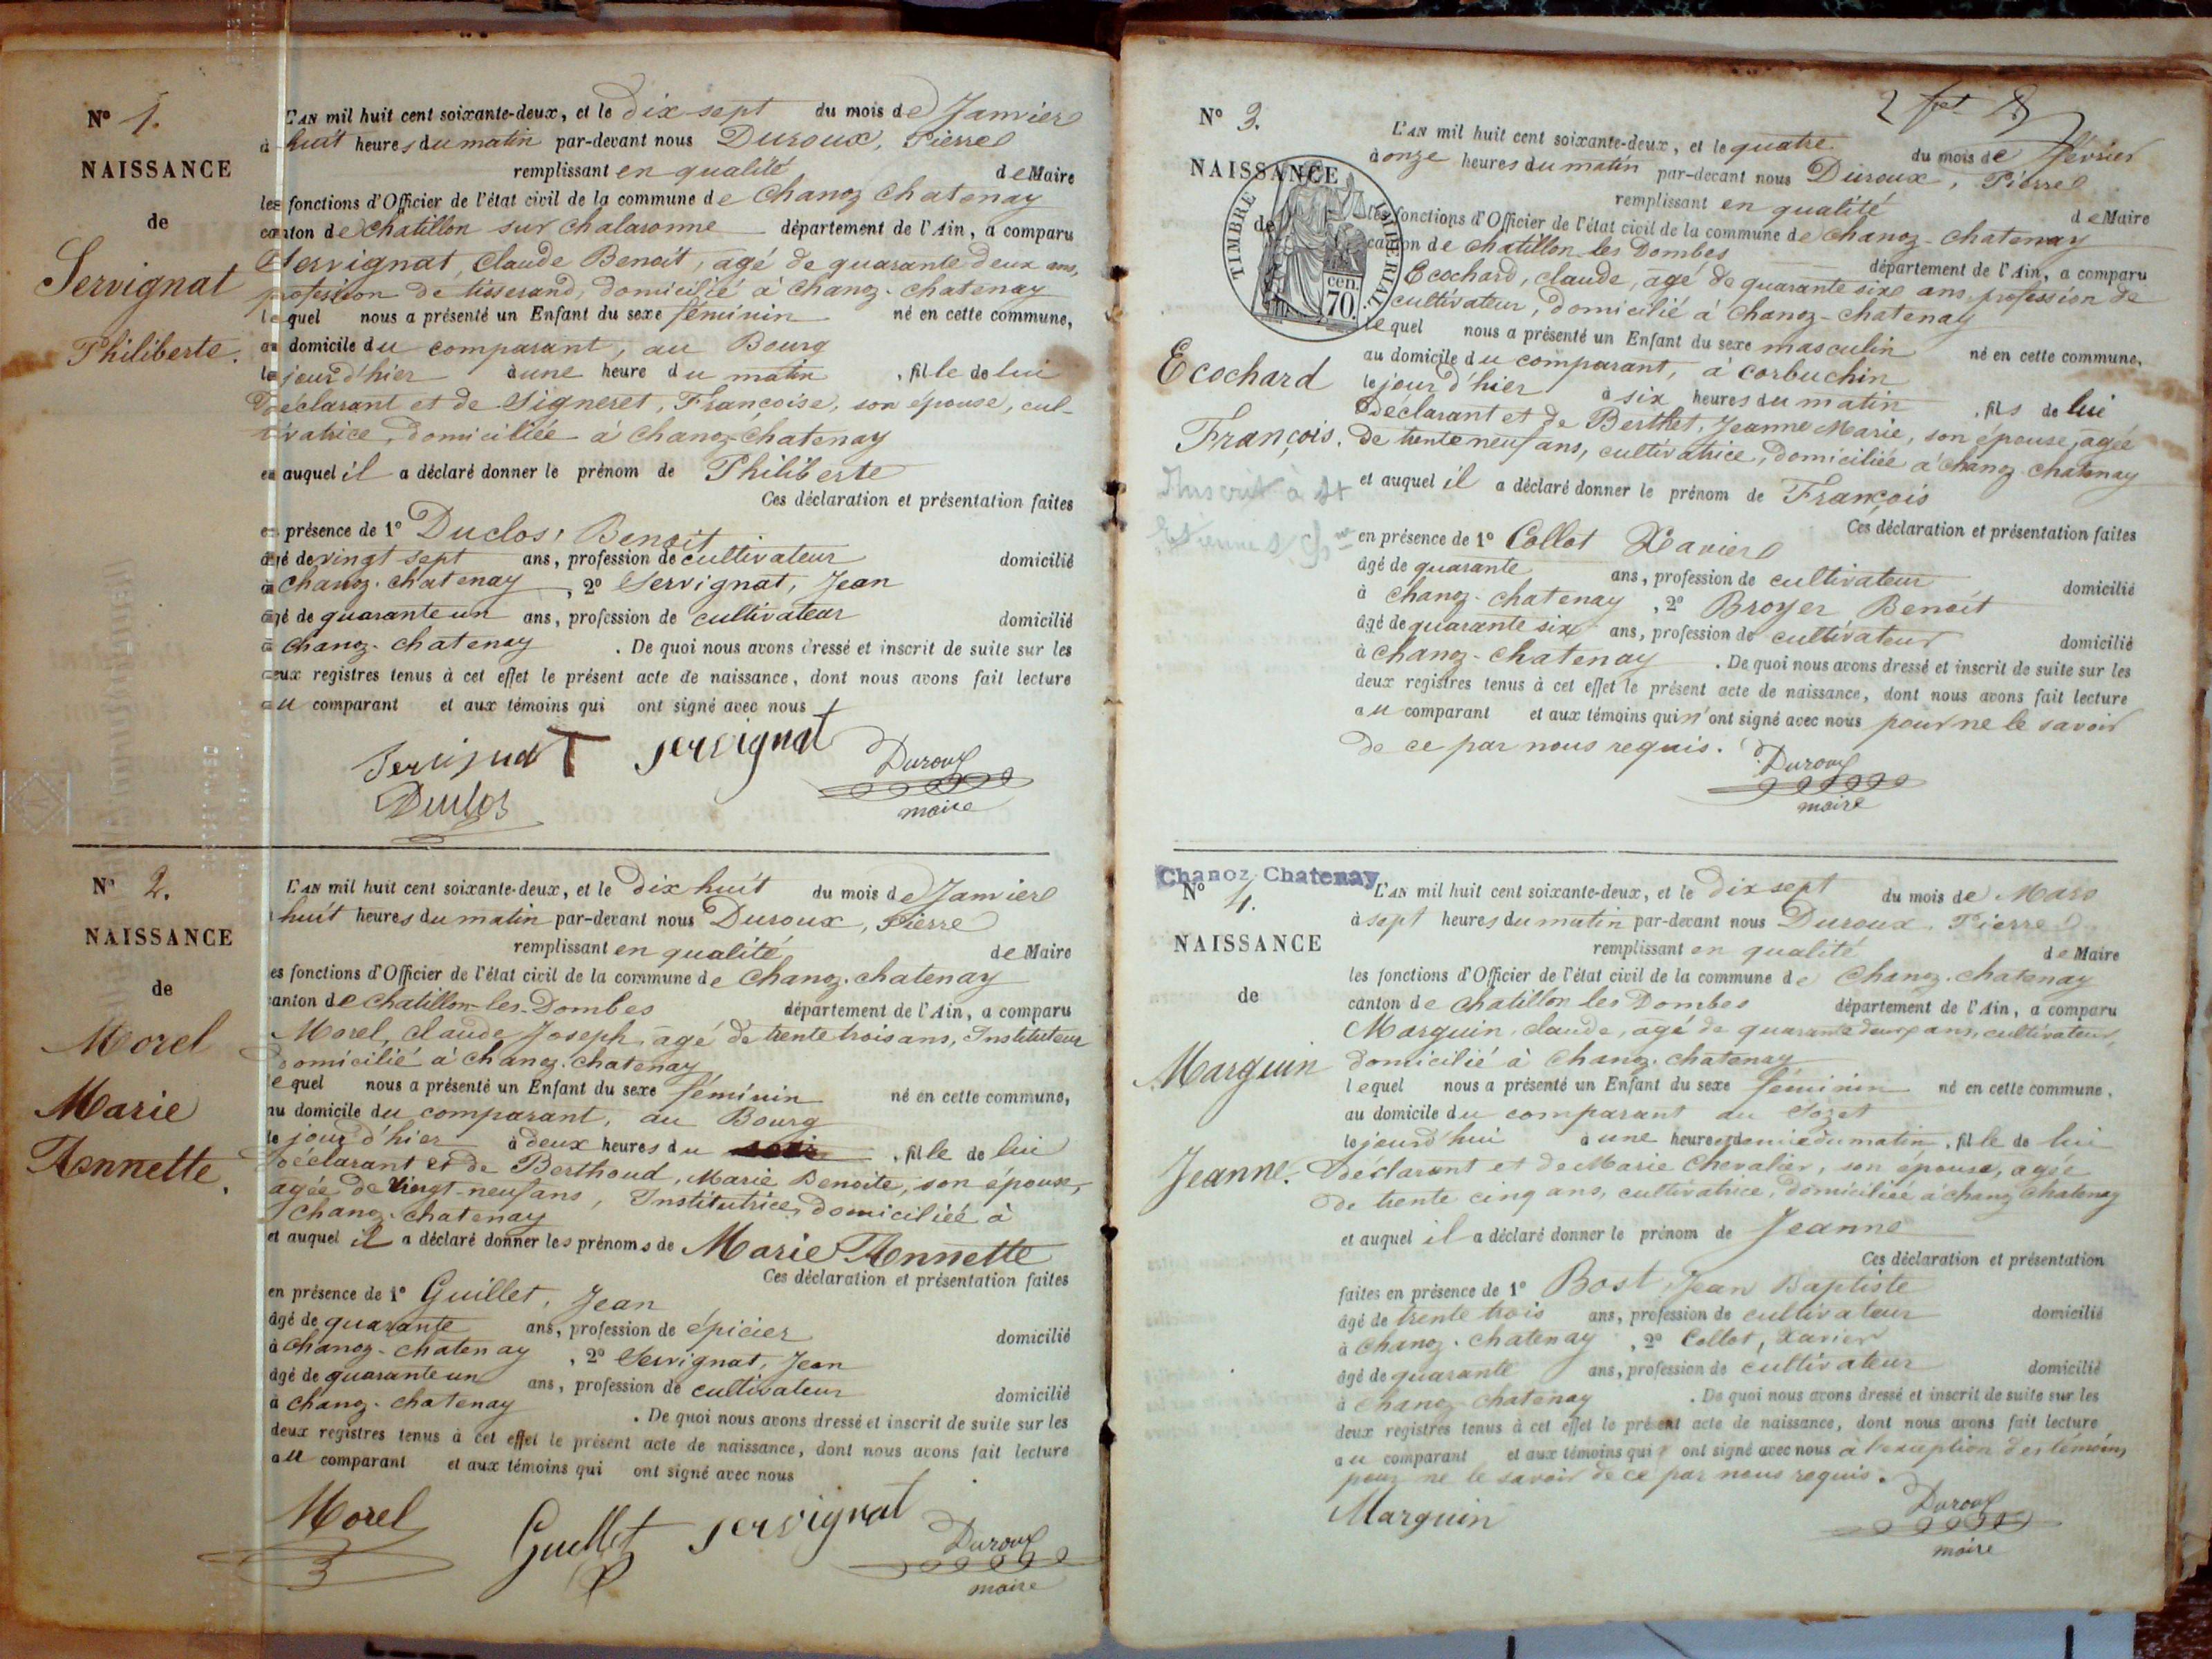 N° 1.
NAISSANCE
de
Servignat
Philiberte.
L'AN mil huit cent soixante-deux, et le dix sept du mois de Janvier
à huit heures du matin par-devant nous Duroux, Pierre
remplissant en qualité de Maire
les fonctions d'Officier de l'état civil de la commune de Chanoz Chatenay
canton de Chatillon sur Chalaronne département de l'Ain, a comparu
Servignat, Claude Benoit, agé de quarante deux ans,
profession de tisserand, domicilié à Chanoz-chatenay
lequel nous a présenté un Enfant du sexe féminin né en cette commune,
au domicile du comparant, au Bourg
le jour d'hier à une heure du matin, fille de lui
déclarant et de Signeret, Françoise, son épouse, cul-
tivatrice, domiciliée à Chanoz-Chatenay
et auquel il a déclaré donner le prénom de Philiberte
Ces déclaration et présentation faites
en présence de 1° Duclos, Benoit
âgé de vingt sept ans, profession de cultivateur domicilié
à Chanoz-chatenay, 2° Servignat, Jean
âgé de quarante un ans, profession de cultivateur domicilié
à Chanoz-chatenay. De quoi nous avons dressé et inscrit de suite sur les
deux registres tenus à cet effet le présent acte de naissance, dont nous avons fait lecture
au comparant et aux témoins qui ont signé avec nous
Servignat servignat Duroux
Duclos maire
N° 2.
NAISSANCE
de
Morel
Marie
Annette.
L'AN mil huit cent soixante-deux, et le dix huit du mois de Janvier
huit heures du matin par-devant nous Duroux, Pierre
remplissant en qualité de Maire
les fonctions d'Officier de l'état civil de la commune de Chanoz-chatenay
canton de Chatillon-les-Dombes département de l'Ain, a comparu
Morel, Claude Joseph, agé de trente trois ans, Instituteur
domicilié à Chanoz-chatenay
lequel nous a présenté un Enfant du sexe féminin né en cette commune,
au domicile du comparant, au Bourg
le jour d'hier à deux heures du soir, fille de lui
déclarant et de Berthoud, Marie Benoite, son épouse,
agée de vingt-neuf ans, Institutrice, domiciliée à
Chanoz-chatenay
et auquel il a déclaré donner les prénoms de Marie Annette
Ces déclaration et présentation faites
en présence de 1° Guillet, Jean
âgé de quarante ans, profession de épicier domicilié
à Chanoz-chatenay, 2° Servignat, Jean
âgé de quarante un ans, profession de cultivateur domicilié
à Chanoz-chatenay. De quoi nous avons dressé et inscrit de suite sur les
deux registres tenus à cet effet le présent acte de naissance, dont nous avons fait lecture
au comparant et aux témoins qui ont signé avec nous
Morel Guillet servignat Duroux
maire
2
N° 3.
NAISSANCE
de
TIMBRE IMPERIAL
70 cen.
Ecochard
François.
Inscrit à St
Etienne
L'AN mil huit cent soixante-deux, et le quatre du mois de février
à onze heures du matin par-devant nous Duroux, Pierre
remplissant en qualité de Maire
les fonctions d'Officier de l'état civil de la commune de Chanoz-chatenay
canton de Chatillon les Dombes département de l'Ain, a comparu
Ecochard, Claude, agé de quarante six ans, profession de
cultivateur, domicilié à Chanoz-chatenay
lequel nous a présenté un Enfant du sexe masculin né en cette commune,
au domicile du comparant, à Corbuchin
le jour d'hier à six heures du matin, fils de lui
déclarant et de Berthet, Jeanne Marie, son épouse, agée
de trente neuf ans, cultivatrice, domiciliée à Chanoz-chatenay
et auquel il a déclaré donner le prénom de François
Ces déclaration et présentation faites
en présence de 1° Collot Xavier
âgé de quarante ans, profession de cultivateur domicilié
à Chanoz-chatenay, 2° Broyer Benoit
âgé de quarante six ans, profession de cultivateur domicilié
à Chanoz-chatenay. De quoi nous avons dressé et inscrit de suite sur les
deux registres tenus à cet effet le présent acte de naissance, dont nous avons fait lecture
au comparant et aux témoins qui n'ont signé avec nous pour ne le savoir
de ce par nous requis. Duroux
maire
Chanoz Chatenay
N° 4.
NAISSANCE
de
Marguin
Jeanne.
L'AN mil huit cent soixante-deux, et le dix sept du mois de Mars
à sept heures du matin par-devant nous Duroux, Pierre
remplissant en qualité de Maire
les fonctions d'Officier de l'état civil de la commune de Chanoz-chatenay
canton de Chatillon les Dombes département de l'Ain, a comparu
Marguin, Claude, agé de quarante deux ans, cultivateur,
domicilié à Chanoz-chatenay
lequel nous a présenté un Enfant du sexe féminin né en cette commune,
au domicile du comparant au
le jourd'hui à une heure et demie du matin, fille de lui
déclarant et de Marie Chevalier, son épouse, agée
de trente cinq ans, cultivatrice, domiciliée à Chanoz Chatenay
et auquel il a déclaré donner le prénom de Jeanne
Ces déclaration et présentation
faites en présence de 1° Bost, Jean Baptiste
âgé de trente trois ans, profession de cultivateur domicilié
à Chanoz-chatenay, 2° Collot, Xavier
âgé de quarante ans, profession de cultivateur domicilié
à Chanoz-chatenay. De quoi nous avons dressé et inscrit de suite sur les
deux registres tenus à cet effet le présent acte de naissance, dont nous avons fait lecture
au comparant et aux témoins qui ont signé avec nous à l'exception des témoins
pour ne le savoir de ce par nous requis.
Marguin Duroux
maire